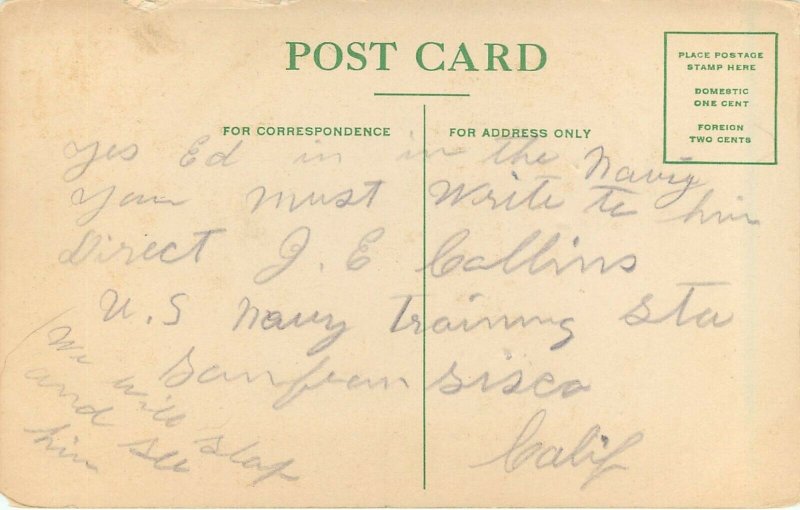 POST CARD
PLACE POSTAGE
STAMP HERE
DOMESTIC
ONE CENT
FOREIGN
TWO CENTS
FOR CORRESPONDENCE
FOR ADDRESS ONLY
yes Ed in in the Navy
you must write to him
Direct J. E Collins
U.S Navy Training Sta
Sanfransisco
Calif
(We will stop
and see
him